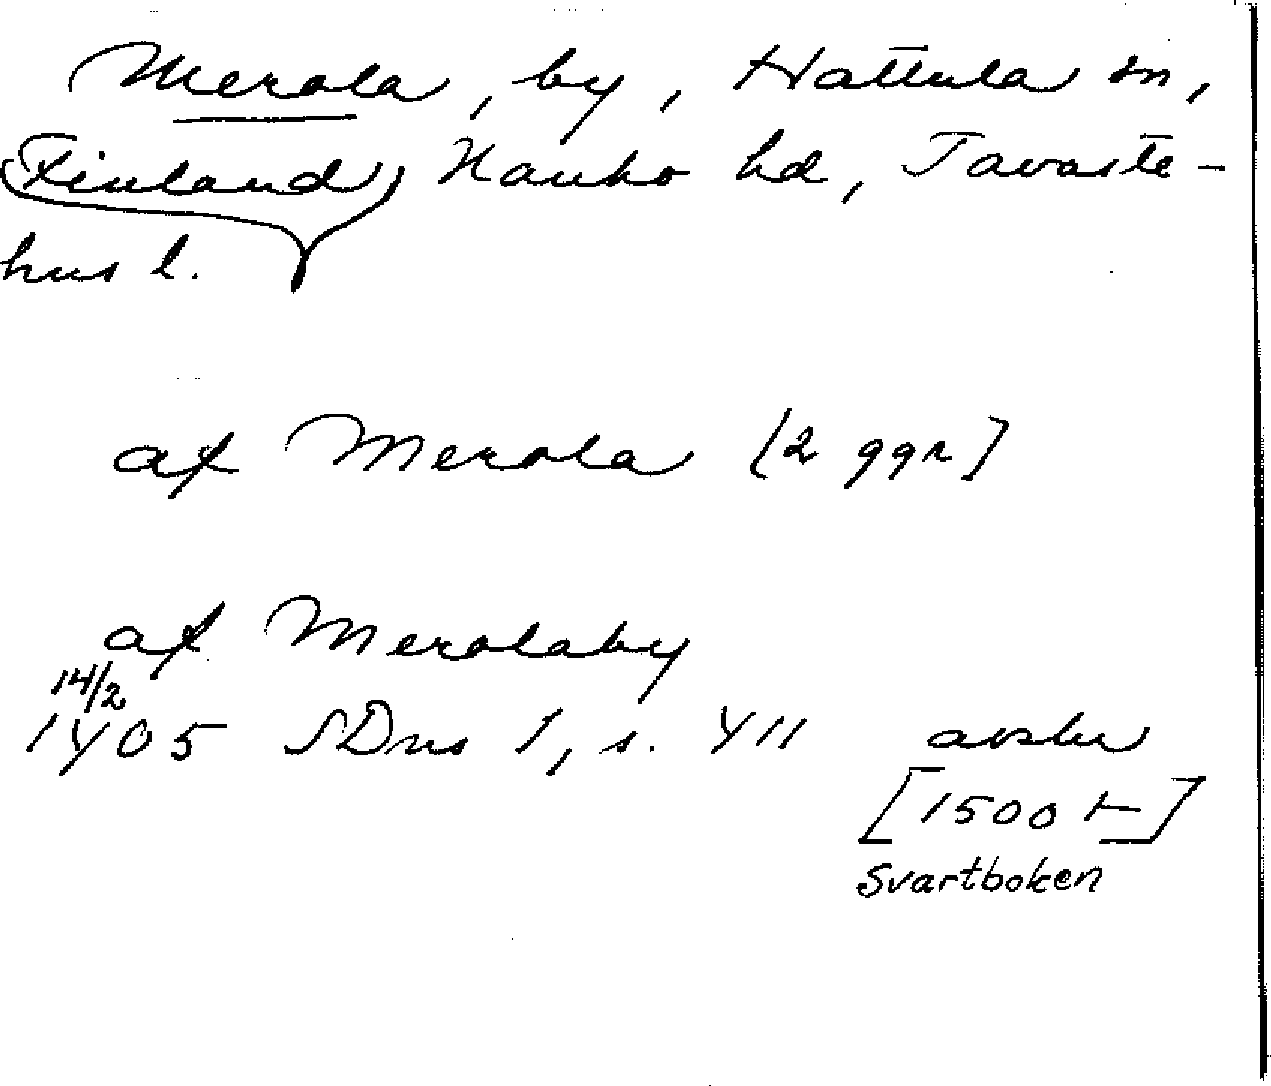 Merola, by, Hattula sn,
(Finland) Hauho hd, Tavaste-
hus l.
af Merola [2 ggr]
af Merolaby
14/2
1405 SDns 1, s. 411 avskr
[1500 t]
Svartboken